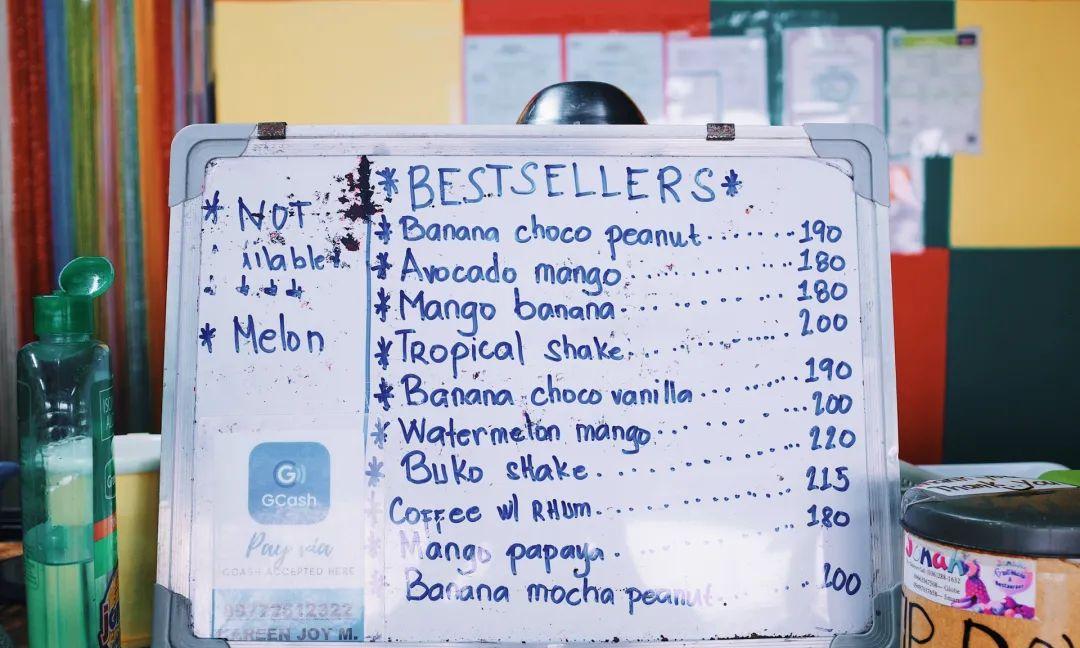 * NOT
* Melon
* BESTSELLERS *
* Banana choco peanut ........ 190
* Avocado mango ........ 180
* Mango banana ........ 180
* Tropical shake ........ 200
* Banana choco vanilla ........ 190
* Watermelon mango ........ 200
* Buko sHake ........ 220
Coffee w/ RHUM ........ 215
* Mango papaya ........ 180
* Banana mocha peanut ........ 200
G
GCash
Pay via
GCASH ACCEPTED HERE
AREEN JOY M.
Jonah's